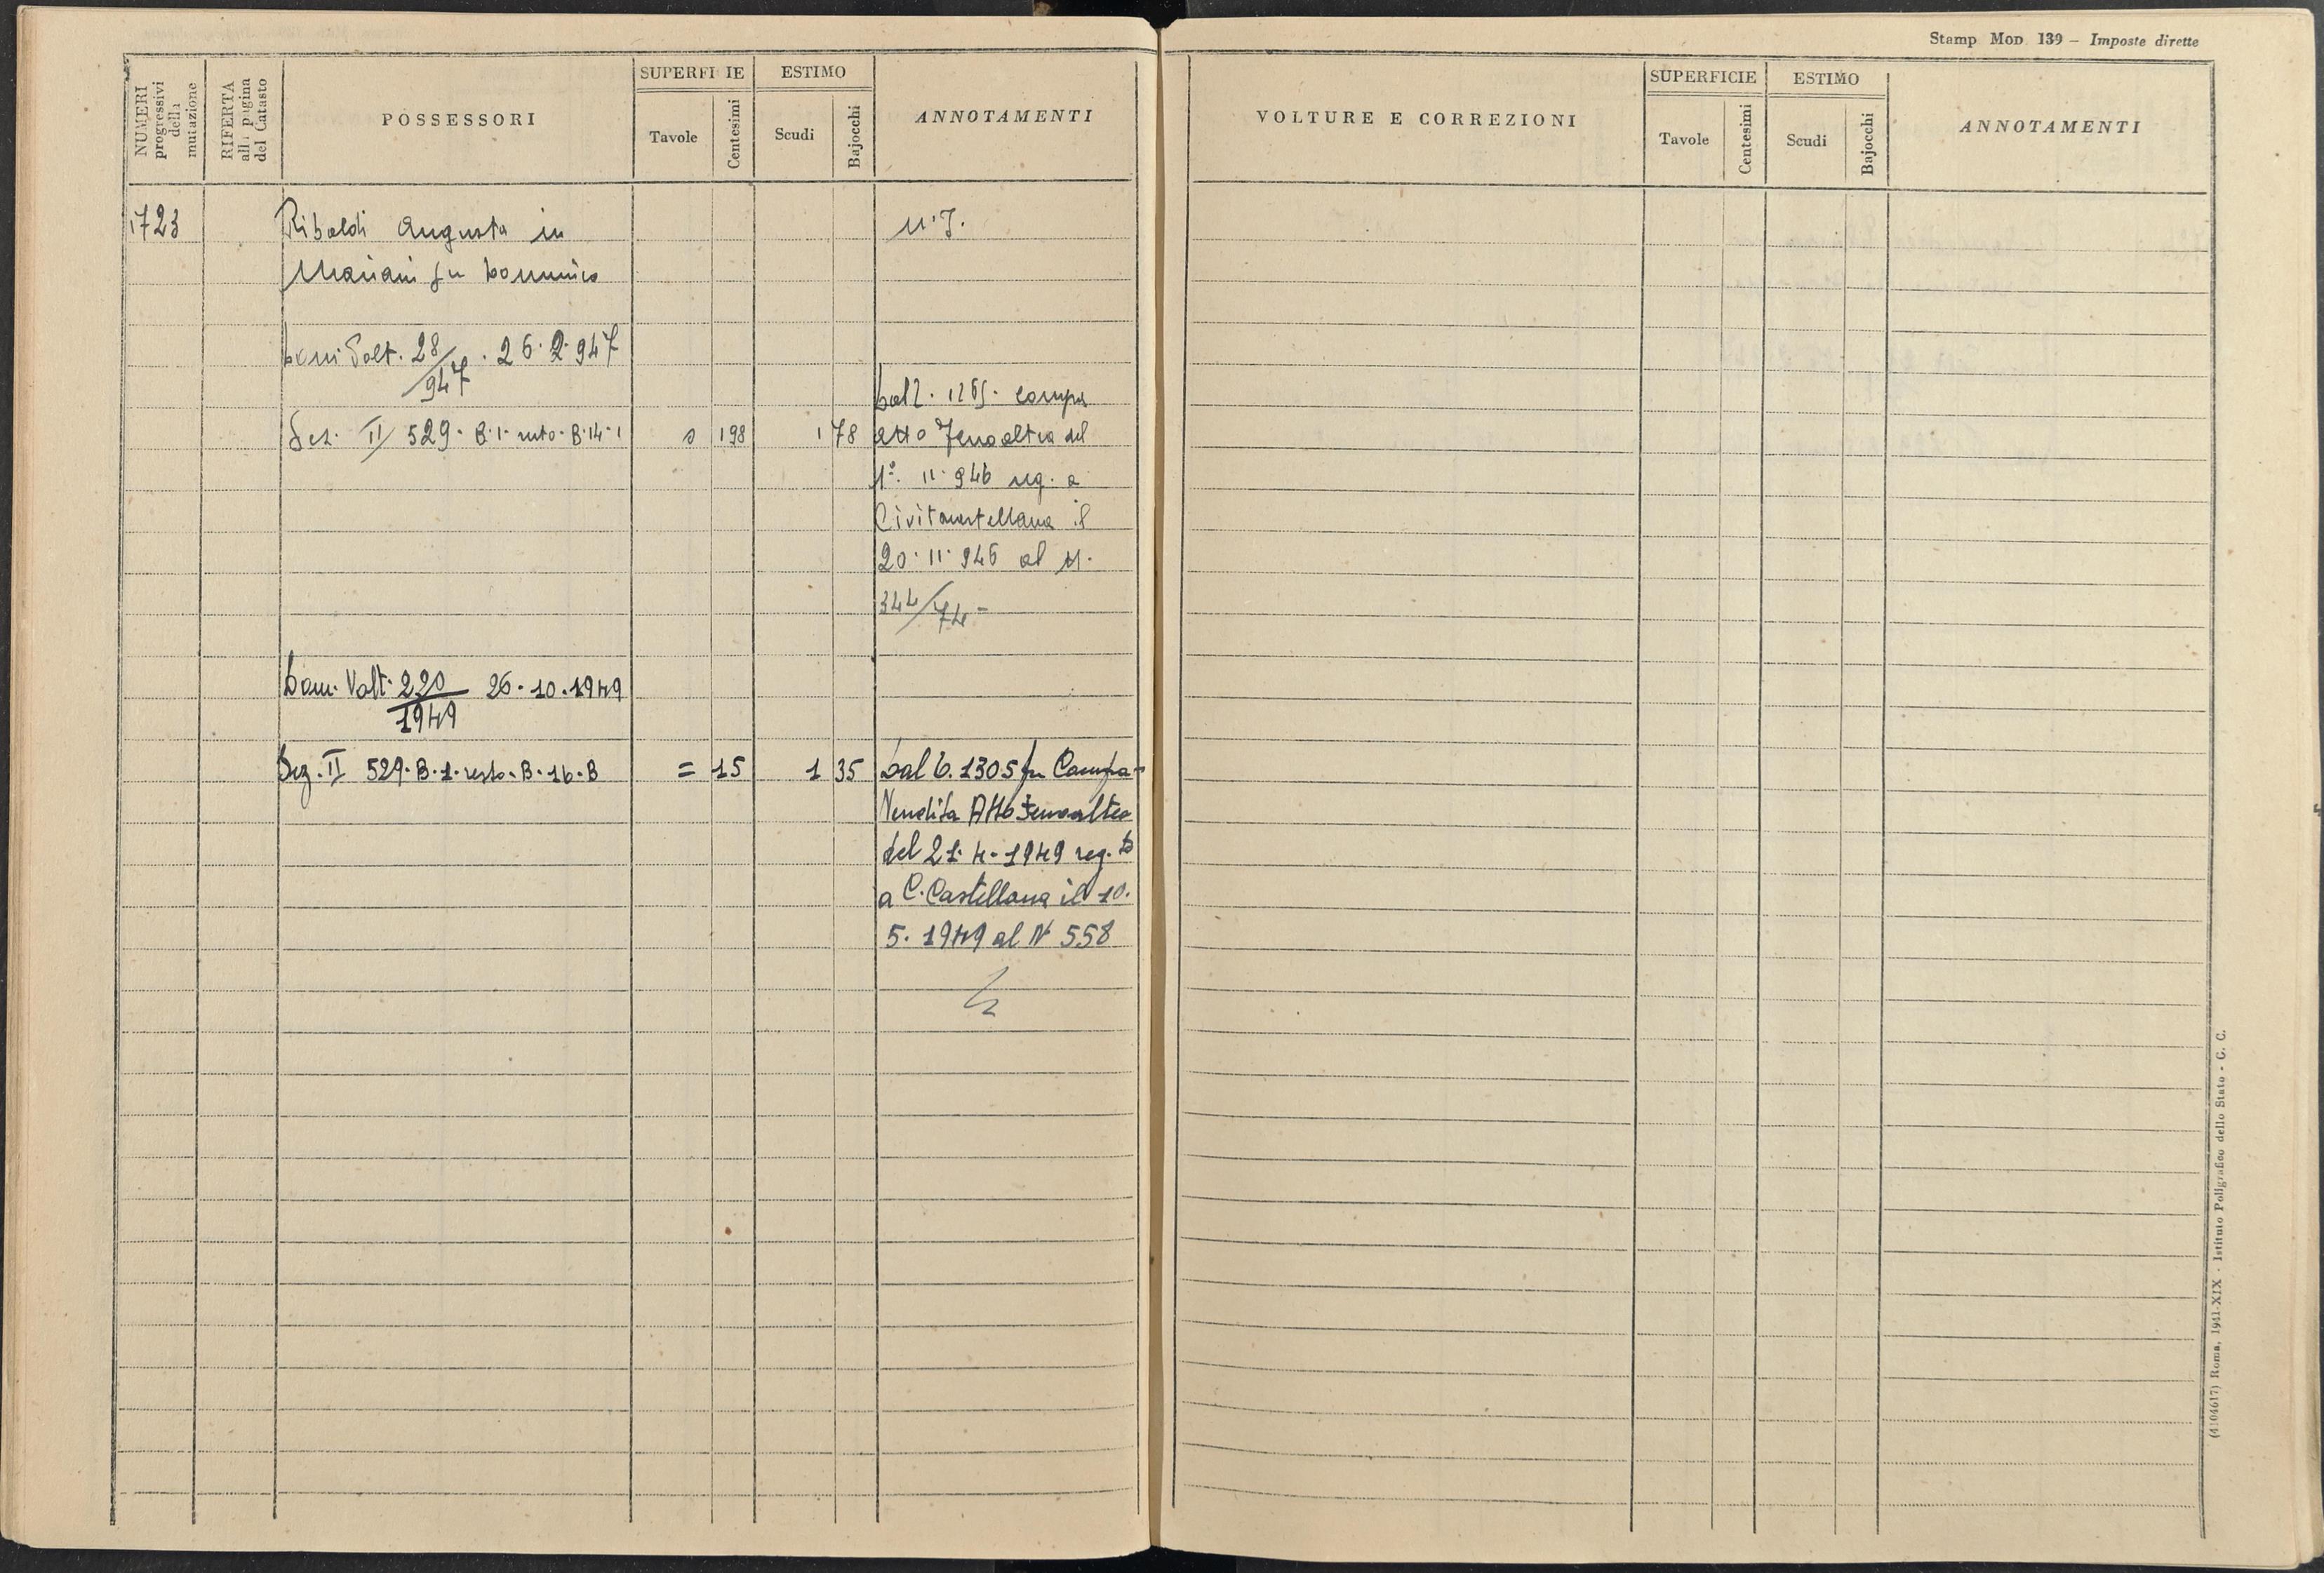 Stamp Mod 139 – Imposte dirette
NUMERI progressivi della mutazione
RIFERTA alla pagina del Catasto
POSSESSORI
SUPERFI IE
Tavole
Centesimi
ESTIMO
Scudi
Bajocchi
ANNOTAMENTI
1723
Ribaldi Augusta in
Mariani fu Domenico
N. 7.
Dom. Volt. 28/947 . 26.2.947
Sez. II 529. B.1. resto. B.14.1
0 198
1 78
Dal 2. compra
atto Fenoaltea del
1°. 11. 946 reg. a
Civitacastellana il
20. 11. 946 al N.
344/74 -
Dom. Volt. 220/1949 26.10.1949
Sez. II 529.B.1.resto.B.16.B
= 15
1 35
Dal 6. 1305 per Compra-
Vendita Atto Fenoaltea
del 21.4.1949 reg.to
a C. Castellana il 10.
5. 1949 al N 558
VOLTURE E CORREZIONI
SUPERFICIE
Tavole
Centesimi
ESTIMO
Scudi
Bajocchi
ANNOTAMENTI
(4104617) Roma, 1941-XIX - Istituto Poligrafico dello Stato - G. C.